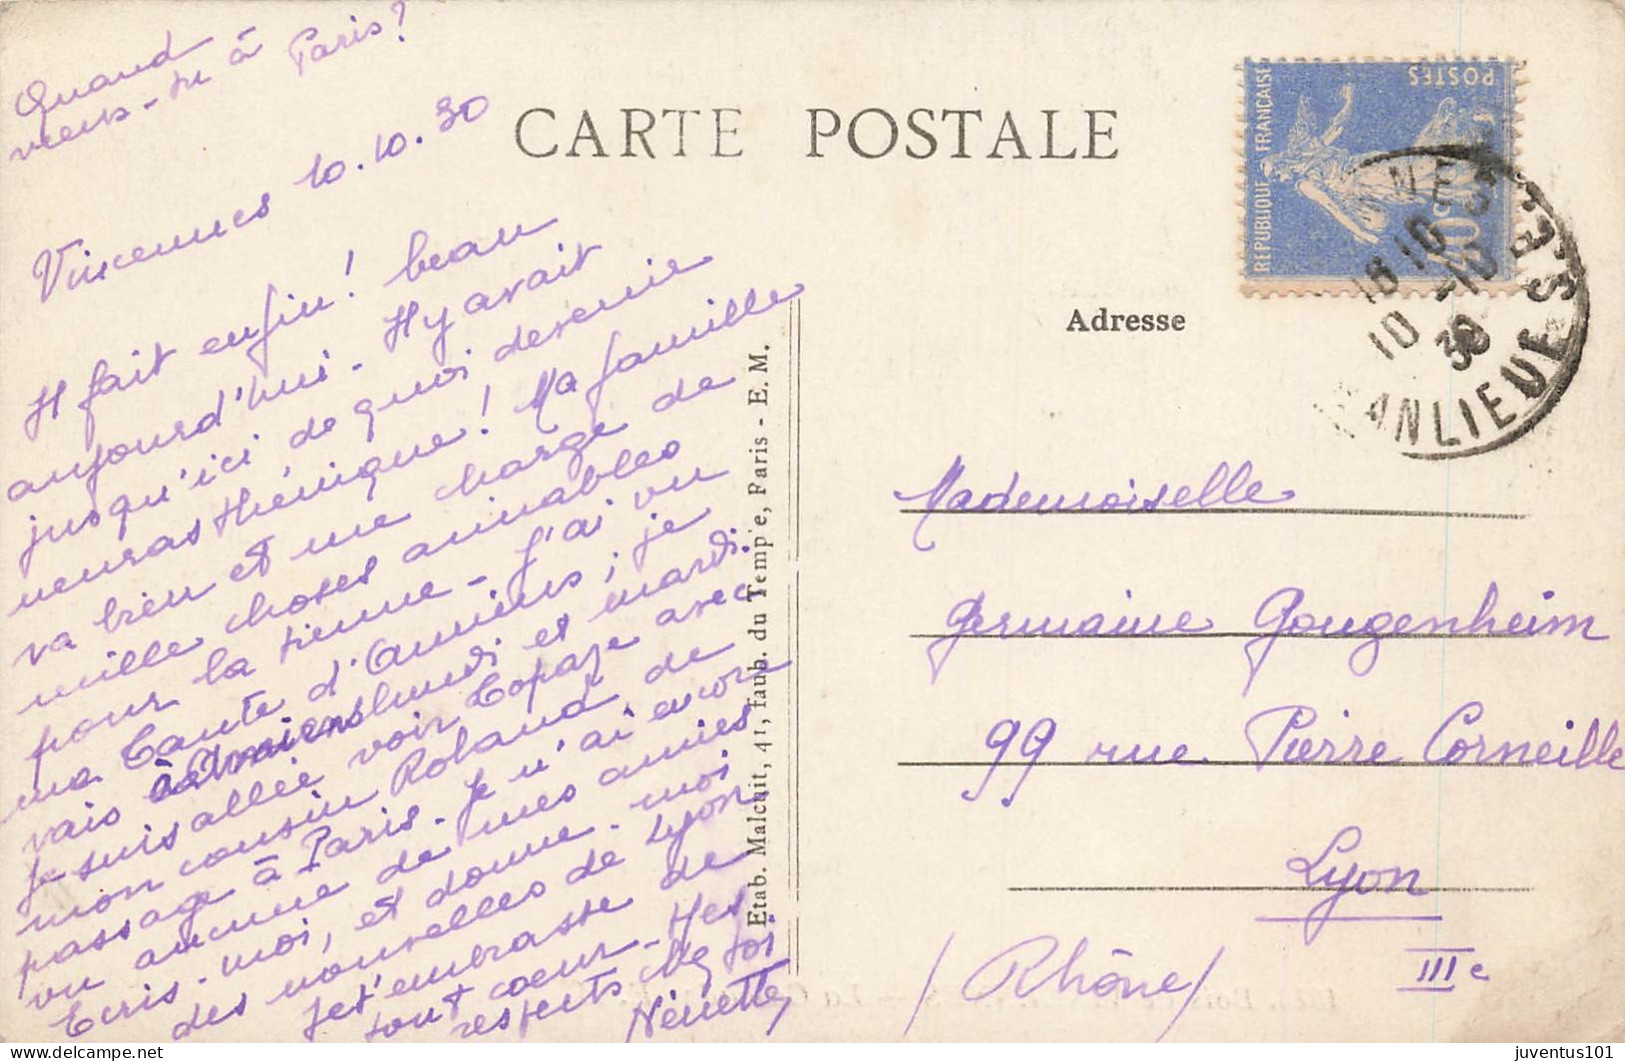 Quand
viens-tu à Paris?
Vincennes 10.10.30
Il fait enfin! beau
aujourd'hui. Il y avait
jusqu'ici de quoi devenir
neurasthénique! Ma famille
va bien et me charge de
mille choses aimables
pour la tienne - J'ai vu
ma Tante d'Amiens; je
vais à Amiens lundi et mardi.
Je suis allée voir Topaze avec
mon cousin Roland, de
passage à Paris. Je n'ai encore
vu aucune de mes amies
Ecris-moi, et donne-moi
des nouvelles de Lyon.
Je t'embrasse de
tout coeur - Mes
respects chez toi
Nénette
CARTE POSTALE
Etab. Malcuit, 41, faub. du Temple, Paris - E. M.
REPUBLIQUE FRANÇAISE
POSTES
40c
18 10
10 -10
30
BANLIEUE
Adresse
Mademoiselle
Germaine Gougenheim
99 rue Pierre Corneille
Lyon
(Rhône) IIIe
juventus101